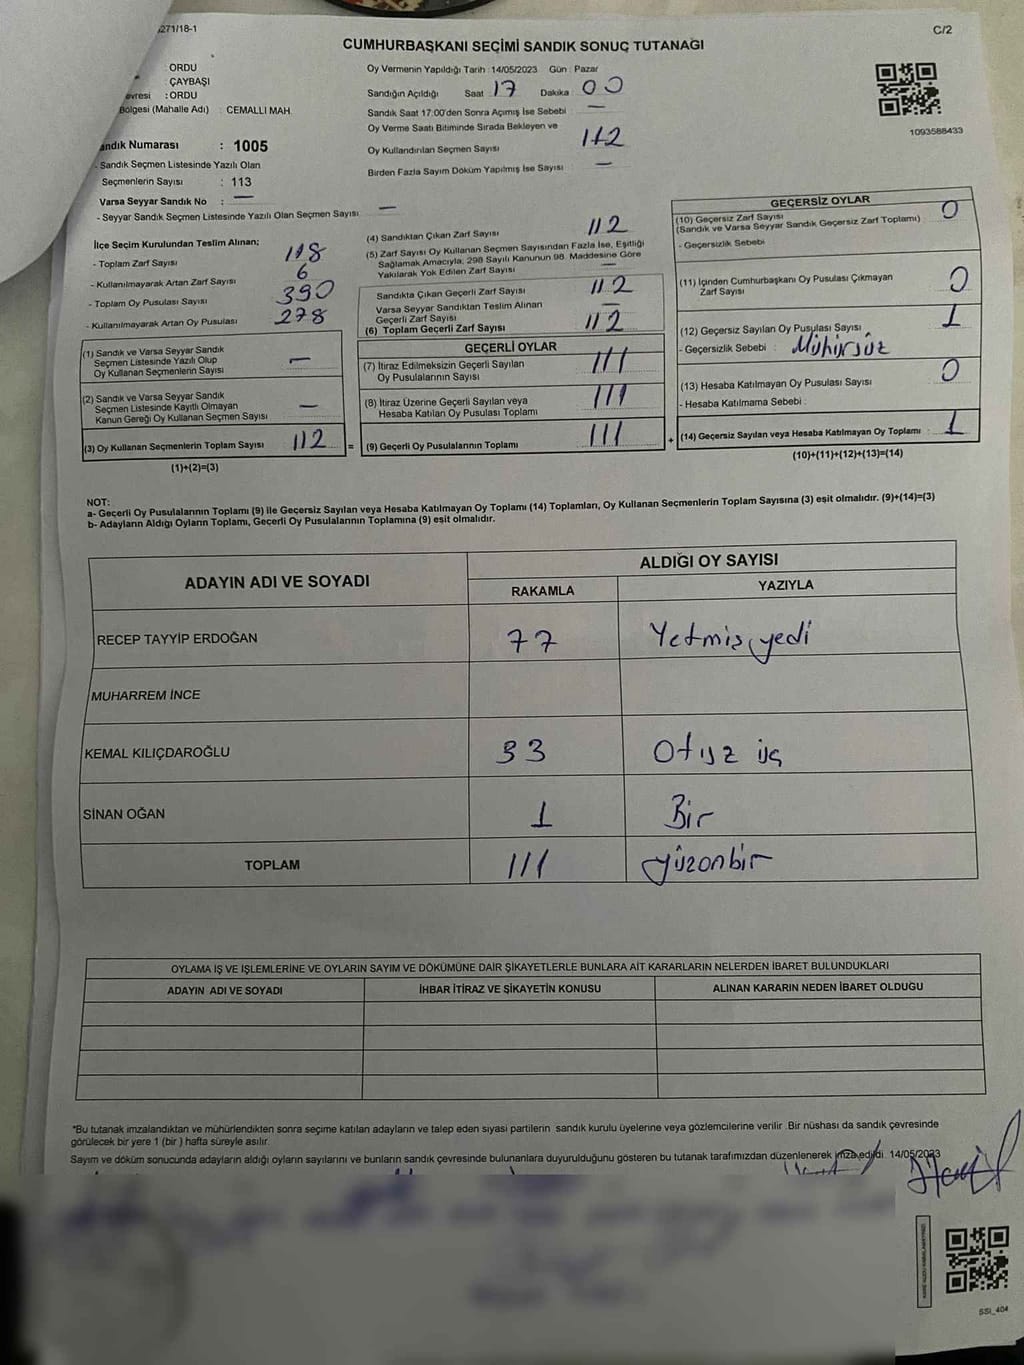 271/18-1
C/2
CUMHURBAŞKANI SEÇİMİ SANDIK SONUÇ TUTANAĞI
: ORDU
: ÇAYBAŞI
evresi : ORDU
Bölgesi (Mahalle Adı) : CEMALLI MAH.
andık Numarası : 1005
- Sandık Seçmen Listesinde Yazılı Olan
Seçmenlerin Sayısı : 113
Varsa Seyyar Sandık No : —
- Seyyar Sandık Seçmen Listesinde Yazılı Olan Seçmen Sayısı: —
Oy Vermenin Yapıldığı Tarih : 14/05/2023 Gün : Pazar
Sandığın Açıldığı Saat : 17 Dakika : 00
Sandık Saat 17:00'den Sonra Açımış İse Sebebi —
Oy Verme Saati Bitiminde Sırada Bekleyen ve
Oy Kullandırılan Seçmen Sayısı 112
Birden Fazla Sayım Döküm Yapılmış İse Sayısı —
1093588433
İlçe Seçim Kurulundan Teslim Alınan;
- Toplam Zarf Sayısı 118
- Kullanılmayarak Artan Zarf Sayısı 6
- Toplam Oy Pusulası Sayısı 390
- Kullanılmayarak Artan Oy Pusulası 278
(1) Sandık ve Varsa Seyyar Sandık
Seçmen Listesinde Yazılı Olup
Oy Kullanan Seçmenlerin Sayısı —
(2) Sandık ve Varsa Seyyar Sandık
Seçmen Listesinde Kayıtlı Olmayan
Kanun Gereği Oy Kullanan Seçmen Sayısı —
(3) Oy Kullanan Seçmenlerin Toplam Sayısı 112 =
(1)+(2)=(3)
(4) Sandıktan Çıkan Zarf Sayısı 112
(5) Zarf Sayısı Oy Kullanan Seçmen Sayısından Fazla İse, Eşitliği
Sağlamak Amacıyla, 298 Sayılı Kanunun 98. Maddesine Göre
Yakılarak Yok Edilen Zarf Sayısı —
Sandıkta Çıkan Geçerli Zarf Sayısı 112
Varsa Seyyar Sandıktan Teslim Alınan
Geçerli Zarf Sayısı —
(6) Toplam Geçerli Zarf Sayısı 112
GEÇERLİ OYLAR
(7) İtiraz Edilmeksizin Geçerli Sayılan
Oy Pusulalarının Sayısı 111
(8) İtiraz Üzerine Geçerli Sayılan veya
Hesaba Katılan Oy Pusulası Toplamı 111
(9) Geçerli Oy Pusulalarının Toplamı 111 +
GEÇERSİZ OYLAR
(10) Geçersiz Zarf Sayısı
(Sandık ve Varsa Seyyar Sandık Geçersiz Zarf Toplamı) : 0
- Geçersizlik Sebebi
(11) İçinden Cumhurbaşkanı Oy Pusulası Çıkmayan
Zarf Sayısı 0
(12) Geçersiz Sayılan Oy Pusulası Sayısı 1
- Geçersizlik Sebebi : Mühürsüz
(13) Hesaba Katılmayan Oy Pusulası Sayısı 0
- Hesaba Katılmama Sebebi :
(14) Geçersiz Sayılan veya Hesaba Katılmayan Oy Toplamı : 1
(10)+(11)+(12)+(13)=(14)
NOT:
a- Geçerli Oy Pusulalarının Toplamı (9) ile Geçersiz Sayılan veya Hesaba Katılmayan Oy Toplamı (14) Toplamları, Oy Kullanan Seçmenlerin Toplam Sayısına (3) eşit olmalıdır. (9)+(14)=(3)
b- Adayların Aldığı Oyların Toplamı, Geçerli Oy Pusulalarının Toplamına (9) eşit olmalıdır.
ADAYIN ADI VE SOYADI
ALDIĞI OY SAYISI
RAKAMLA YAZIYLA
RECEP TAYYİP ERDOĞAN 77 Yetmiş yedi
MUHARREM İNCE
KEMAL KILIÇDAROĞLU 33 Otuz üç
SİNAN OĞAN 1 Bir
TOPLAM 111 yüzonbir
OYLAMA İŞ VE İŞLEMLERİNE VE OYLARIN SAYIM VE DÖKÜMÜNE DAİR ŞİKAYETLERLE BUNLARA AİT KARARLARIN NELERDEN İBARET BULUNDUKLARI
ADAYIN ADI VE SOYADI İHBAR İTİRAZ VE ŞİKAYETİN KONUSU ALINAN KARARIN NEDEN İBARET OLDUĞU
*Bu tutanak imzalandıktan ve mühürlendikten sonra seçime katılan adayların ve talep eden siyasi partilerin sandık kurulu üyelerine veya gözlemcilerine verilir. Bir nüshası da sandık çevresinde
görülecek bir yere 1 (bir) hafta süreyle asılır.
Sayım ve döküm sonucunda adayların aldığı oyların sayılarını ve bunların sandık çevresinde bulunanlara duyurulduğunu gösteren bu tutanak tarafımızdan düzenlenerek imza edildi. 14/05/2023
SSI_404